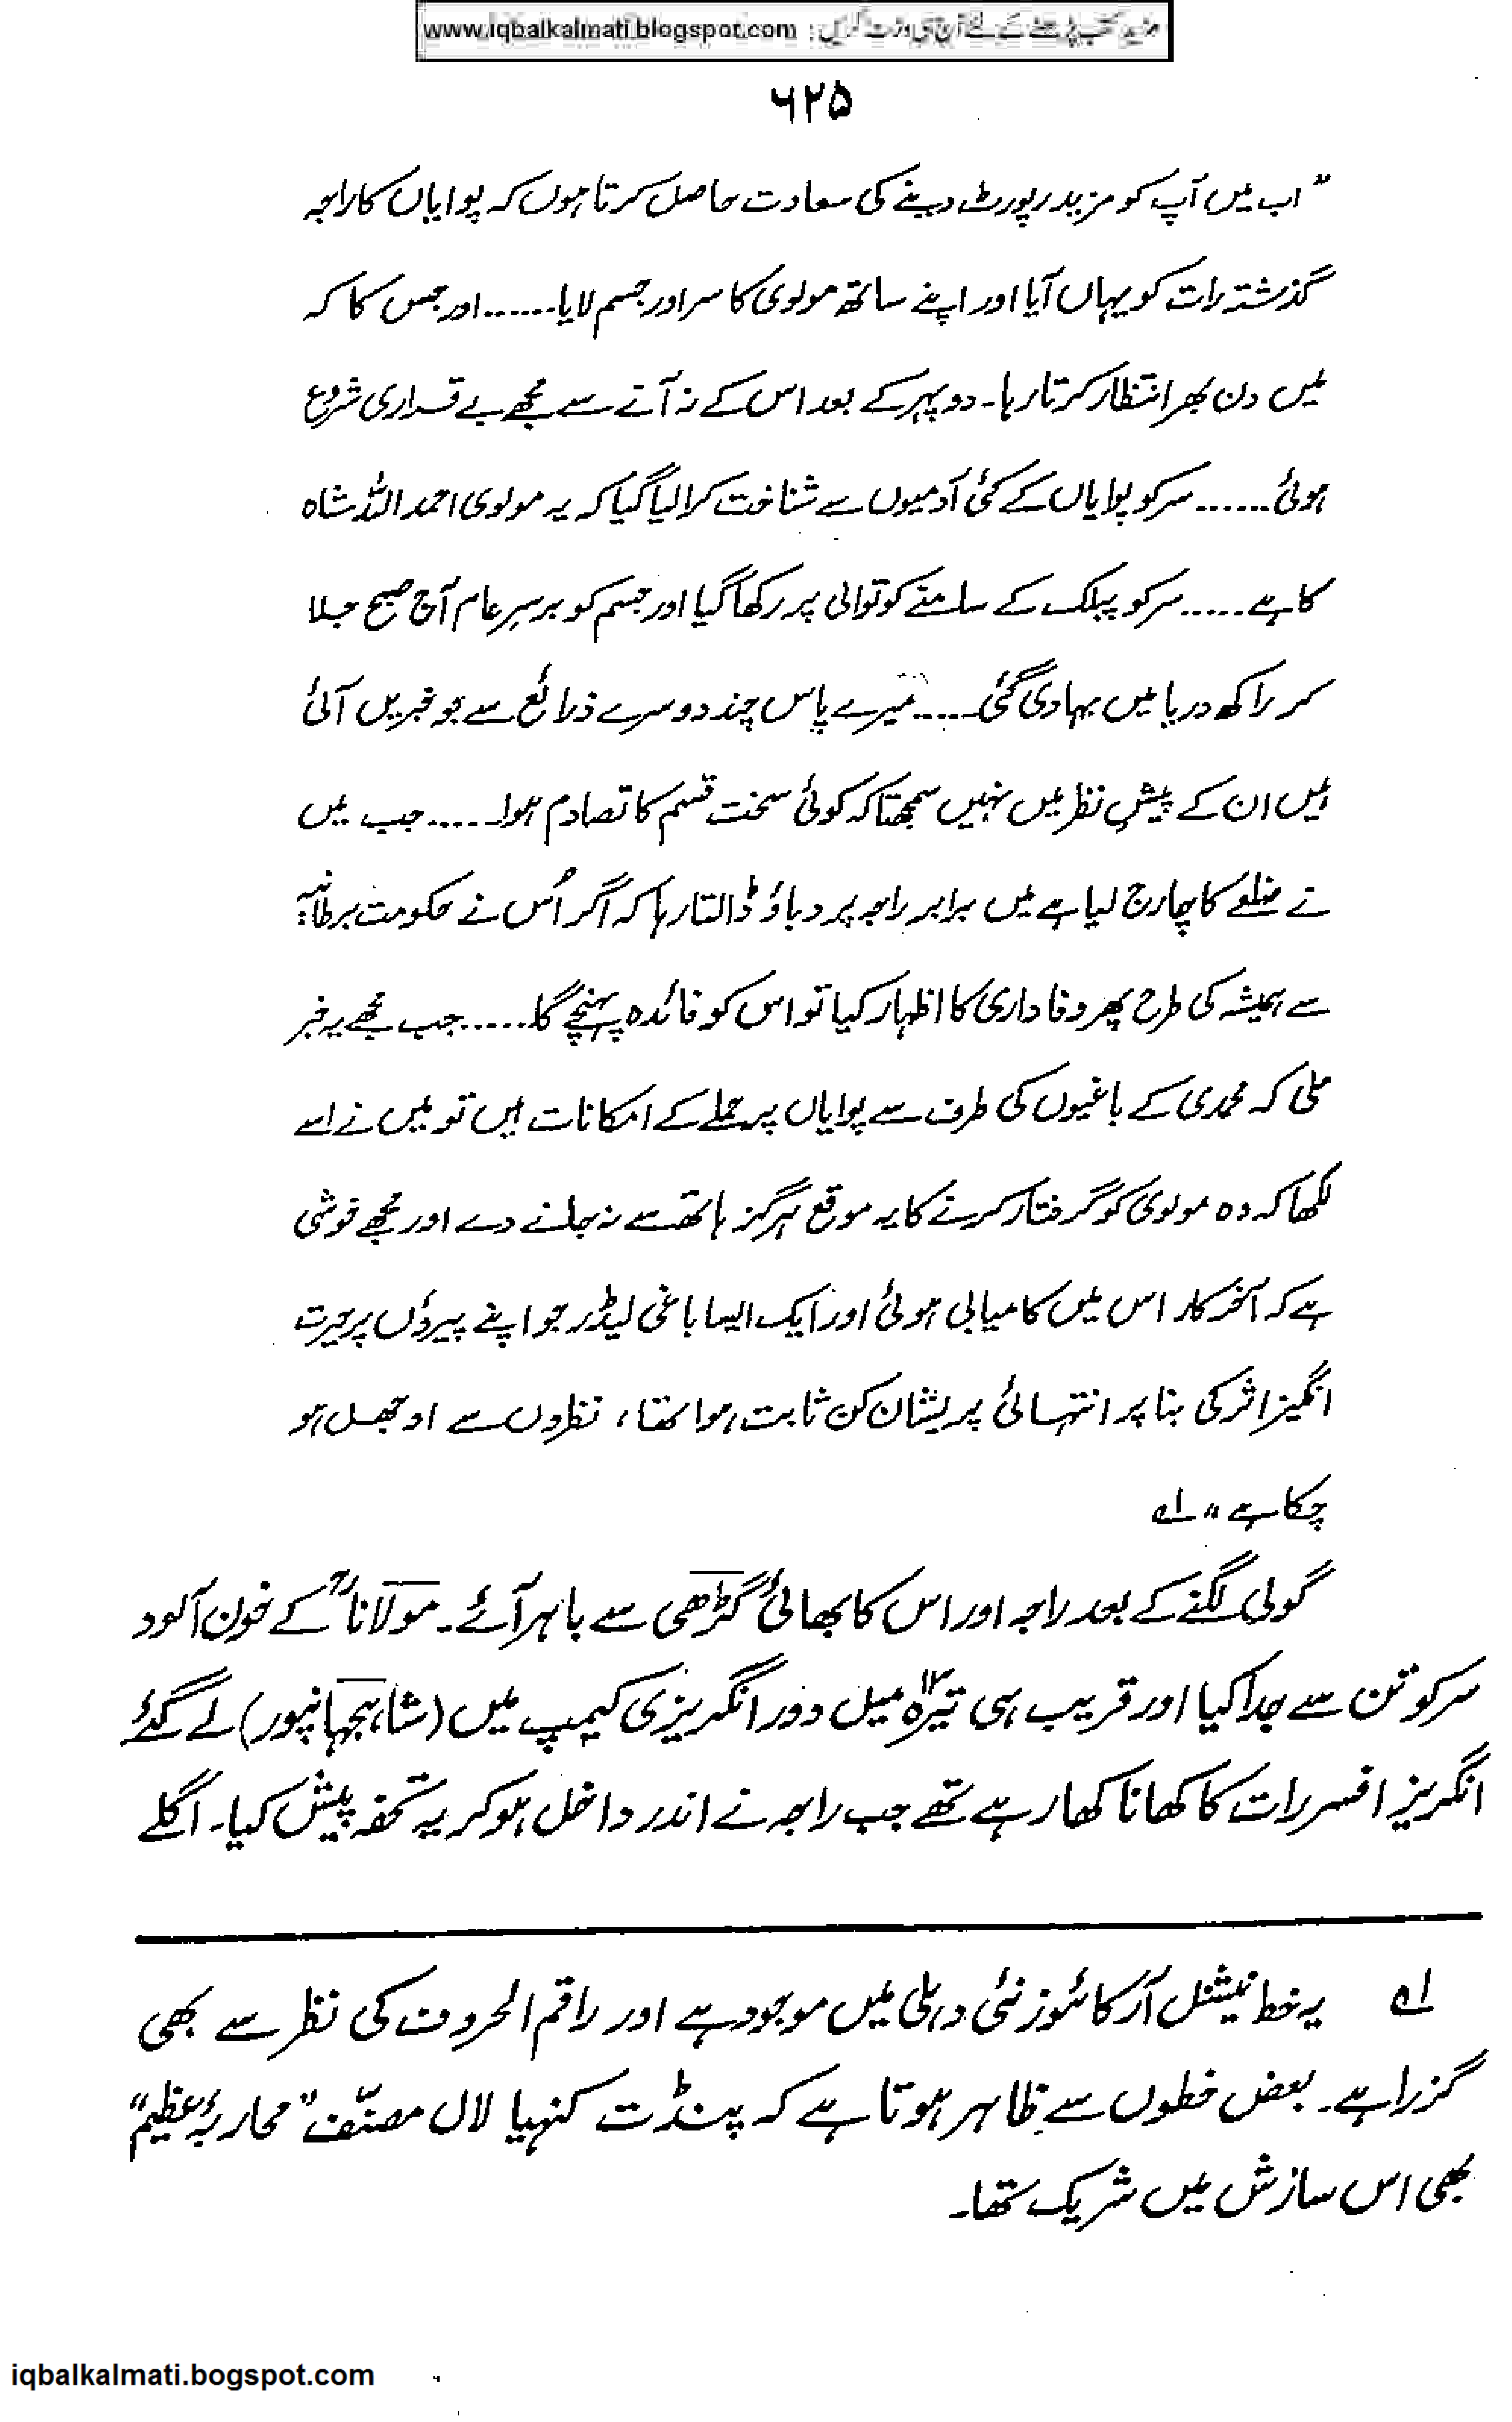 مزید کتب پڑھنے کے لئے آج ہی وزٹ کریں : www.iqbalkalmati.blogspot.com
۶۲۵
"اب میں آپ کو مزید رپورٹ دینے کی سعادت حاصل کرتا ہوں کہ پوایاں کا راجہ
گذشتہ رات کو یہاں آیا اور اپنے ساتھ مولوی کا سر اور جسم لایا...... اور جس کا کہ
میں دن بھر انتظار کرتا رہا۔ دوپہر کے بعد اس کے نہ آنے سے مجھے بے قراری شروع
ہوئی...... سر کو پوایاں کے کئی آدمیوں سے شناخت کرا لیا گیا کہ یہ مولوی احمد اللہ شاہ
کا ہے..... سر کو پبلک کے سامنے کوتوالی پر رکھا گیا اور جسم کو برسرِ عام آج صبح جلا
کر راکھ دریا میں بہا دی گئی..... میرے پاس چند دوسرے ذرائع سے جو خبریں آئی
ہیں ان کے پیشِ نظر میں نہیں سمجھتا کہ کوئی سخت قسم کا تصادم ہوا..... جب میں
نے ضلعے کا چارج لیا ہے میں برابر راجہ پر دباؤ ڈالتا رہا کہ اگر اُس نے حکومت برطانیہ
سے ہمیشہ کی طرح پھر وفاداری کا اظہار کیا تو اس کو فائدہ پہنچے گا..... جب مجھے یہ خبر
ملی کہ محمدی کے باغیوں کی طرف سے پوایاں پر حملے کے امکانات ہیں تو میں نے اسے
لکھا کہ وہ مولوی کو گرفتار کرنے کا یہ موقع ہرگز ہاتھ سے نہ جانے دے اور مجھے خوشی
ہے کہ آخرکار اس میں کامیابی ہوئی اور ایک ایسا باغی لیڈر جو اپنے پیروؤں پر حیرت
انگیز اثر کی بنا پر انتہائی پریشان کن ثابت ہوا تھا، نظروں سے اوجھل ہو
چکا ہے" لہ
گولی لگنے کے بعد راجہ اور اس کا بھائی گڑھی سے باہر آئے۔ مولاناؒ کے خون آلود
سر کو تن سے جدا کیا اور قریب ہی تیرہ ۱۳ میل دور انگریزی کیمپ میں (شاہجہانپور) لے گئے
انگریز افسر رات کا کھانا کھا رہے تھے جب راجہ نے اندر داخل ہو کر یہ تحفہ پیش کیا۔ اگلے
لہ یہ خط نیشنل آرکائوز نئی دہلی میں موجود ہے اور راقم الحروف کی نظر سے بھی
گزرا ہے۔ بعض خطوں سے ظاہر ہوتا ہے کہ پنڈت کنہیا لال مصنّف "محاربۂ عظیم"
بھی اس سازش میں شریک تھا۔
iqbalkalmati.bogspot.com